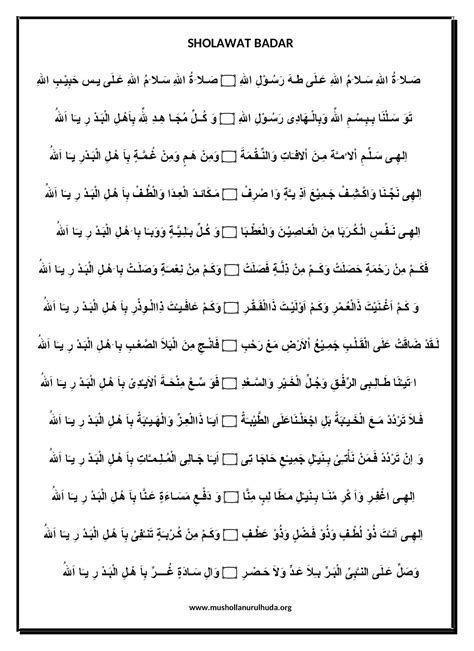 SHOLAWAT BADAR
صَلاَةُ اللهِ سَلاَمُ اللهِ عَلَى طـهَ رَسُوْلِ اللهِ □ صَلاَةُ اللهِ سَلاَمُ اللهِ عَلَى يـس حَبِيْبِ اللهِ
تَوَ سَلْنَا بِبِسْمِ اللهِ وَبِالْهَادِى رَسُوْلِ اللهِ □ وَ كُلِّ مُجَا هِدِ لِلّٰهِ بِاَهْلِ الْبَدْ رِ يَا اَللهُ
اِلهِى سَلِّمِ اْلاُمَّة مِنَ اْلافَاتِ وَالنِّقْمَةْ □ وَمِنْ هَمٍ وَمِنْ غُمَّةٍ بِاَ هْلِ الْبَدْ رِ يَا اَللهُ
اِلهِى نَجِّنَا وَاكْشِفْ جَمِيْعَ اَذِ يَّةٍ وَا صْرِفْ □ مَكَائدَ الْعِدَا وَالْطُفْ بِاَ هْلِ الْبَدْ رِ يَا اَللهُ
اِلهِى نَفِّسِ الْكُرَبَا مِنَ الْعَاصِيْنَ وَالْعَطْبَا □ وَ كُلِّ بَلِيَّةٍ وَوَبَا بِاَ هْلِ الْبَدْ رِ يَا اَللهُ
فَكَمْ مِنْ رَحْمَةٍ حَصَلَتْ وَكَمْ مِنْ ذِلَّةٍ فَصَلَتْ □ وَكَمْ مِنْ نِعْمَةٍ وَصَلَتْ بِاَ هْلِ الْبَدْ رِ يَا اَللهُ
وَ كَمْ اَغْنَيْتَ ذَالْعُمْرِ وَكَمْ اَوْلَيْتَ ذَاالْفَقْرِ □ وَكَمْ عَافَيْتَ ذِاالْوِذْرِ بِاَ هْلِ الْبَدْ رِ يَا اَللهُ
لَقَدْ ضَاقَتْ عَلَى الْقَلْبِ جَمِيْعُ اْلاَرْضِ مَعْ رَحْبِ □ فَانْجِ مِنَ الْبَلاَ الصَّعْبِ بِاَ هْلِ الْبَدْ رِ يَا اَللهُ
اَتَيْنَا طَالِبِى الرِّفْقِ وَجُلِّ الْخَيْرِ وَالسَّعْدِ □ فَوَ سِّعْ مِنْحَةَ اْلاَيْدِىْ بِاَ هْلِ الْبَدْ رِ يَا اَللهُ
فَلاَ تَرْدُدْ مَعَ الْخَيْبَةْ بَلِ اجْعَلْنَاعَلَى الطَّيْبَةْ □ اَيَا ذَاالْعِزِّ وَالْهَيْبَةْ بِاَ هْلِ الْبَدْ رِ يَا اَللهُ
وَ اِنْ تَرْدُدْ فَمَنْ نَأْتِىْ بِنَيْلِ جَمِيْعِ حَاجَا تِى □ اَيَا جَالِى الْمُلِمَّاتِ بِاَ هْلِ الْبَدْ رِ يَا اَللهُ
اِلهِى اغْفِرِ وَاَ كْرِ مْنَا بِنَيْلِ مَطَا لِبٍ مِنَّا □ وَ دَفْعِ مَسَاءَةٍ عَنَّا بِاَ هْلِ الْبَدْ رِ يَا اَللهُ
اِلهِى اَنْتَ ذُوْ لُطْفٍ وَذُوْ فَضْلٍ وَذُوْ عَطْفٍ □ وَكَمْ مِنْ كُرْبَةٍ تَنْفِىْ بِاَ هْلِ الْبَدْ رِ يَا اَللهُ
وَصَلِّ عَلَى النَّبِىِّ الْبَرِّ بِلاَ عَدٍّ وَلاَ حَصْرِ □ وَالِ سَادَةٍ غُرِّ بِاَ هْلِ الْبَدْ رِ يَا اَللهُ
www.mushollanurulhuda.org